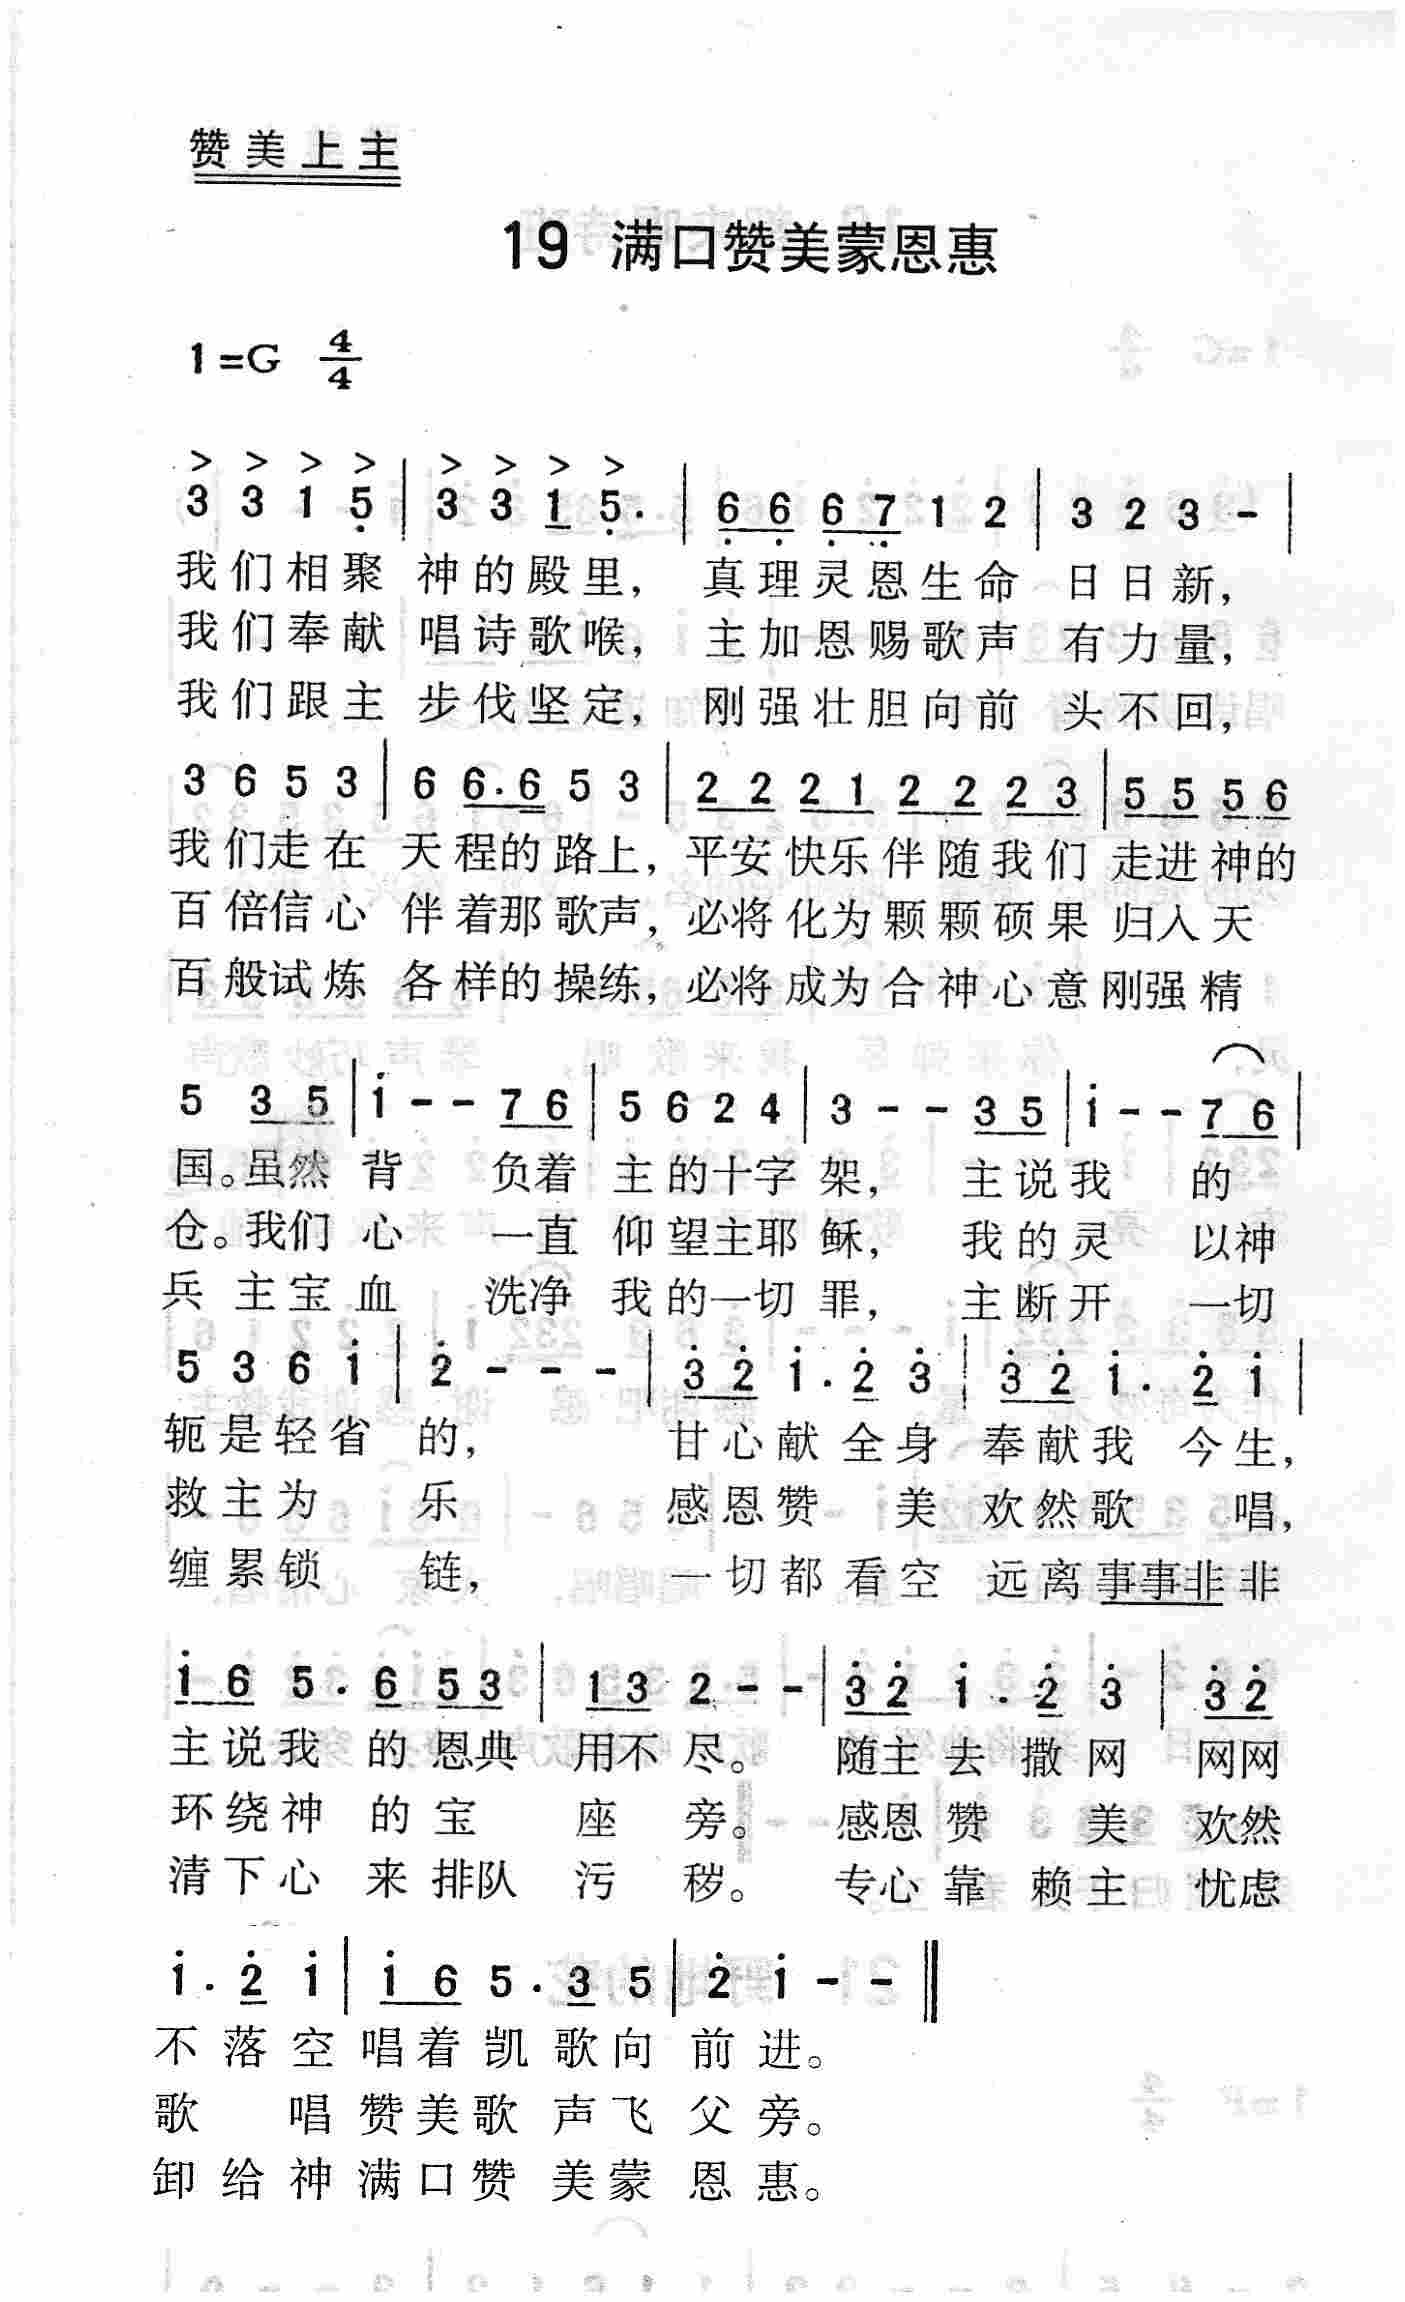 赞美上主
19 满口赞美蒙恩惠
1=G 4/4
> > > > > > > >
3 3 1 5̣ | 3 3 1 5̣. | 6̣ 6̣ 6̣ 7̣ 1 2 | 3 2 3 - |
我们相聚 神的殿里, 真理灵恩生命 日日新,
我们奉献 唱诗歌喉, 主加恩赐歌声 有力量,
我们跟主 步伐坚定, 刚强壮胆向前 头不回,
3 6 5 3 | 6 6.6 5 3 | 2 2 2 1 2 2 2 3 | 5 5 5 6
我们走在 天程的路上, 平安快乐伴随我们 走进神的
百倍信心 伴着那歌声, 必将化为颗颗硕果 归入天
百般试炼 各样的操练, 必将成为合神心意 刚强精
5 3 5 | i - - 7 6 | 5 6 2 4 | 3 - - 3 5 | i - - 7 6 |
国。虽然 背 负着 主的十字架, 主说我 的
仓。我们 心 一直 仰望主耶稣, 我的灵 以神
兵 主宝血 洗净 我的一切罪, 主断开 一切
5 3 6 i | 2̇ - - - | 3̇ 2̇ i. 2̇ 3̇ | 3̇ 2̇ i. 2̇ i |
轭是轻省 的, 甘心献全身 奉献我 今生,
救主为 乐 感恩赞 美 欢然歌 唱,
缠累锁 链, 一切都看空 远离事事非非
i 6 5. 6 5 3 | 1 3 2 - - | 3̇ 2̇ i. 2̇ 3̇ | 3̇ 2̇
主说我 的恩典 用不尽。 随主去撒网 网网
环绕神 的宝 座 旁。 感恩赞 美 欢然
清下心 来排队 污 秽。 专心靠 赖主 忧虑
i. 2̇ i | i 6 5. 3 5 | 2̇ i - - ‖
不落空 唱着凯歌向 前进。
歌 唱 赞美歌声飞 父旁。
卸给神 满口赞美蒙 恩惠。